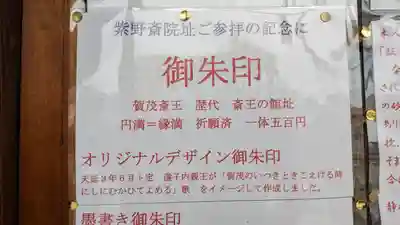 紫野斎院址ご参拝の記念に
御朱印
賀茂斎王 歴代 斎王の御址
円満＝縁満 祈願済 一体五百円
オリジナルデザイン御朱印
内親王が「賀茂のいつきときこえける時
にしにむかひてよめる」歌 をイメージして作成しました。
墨書き御朱印